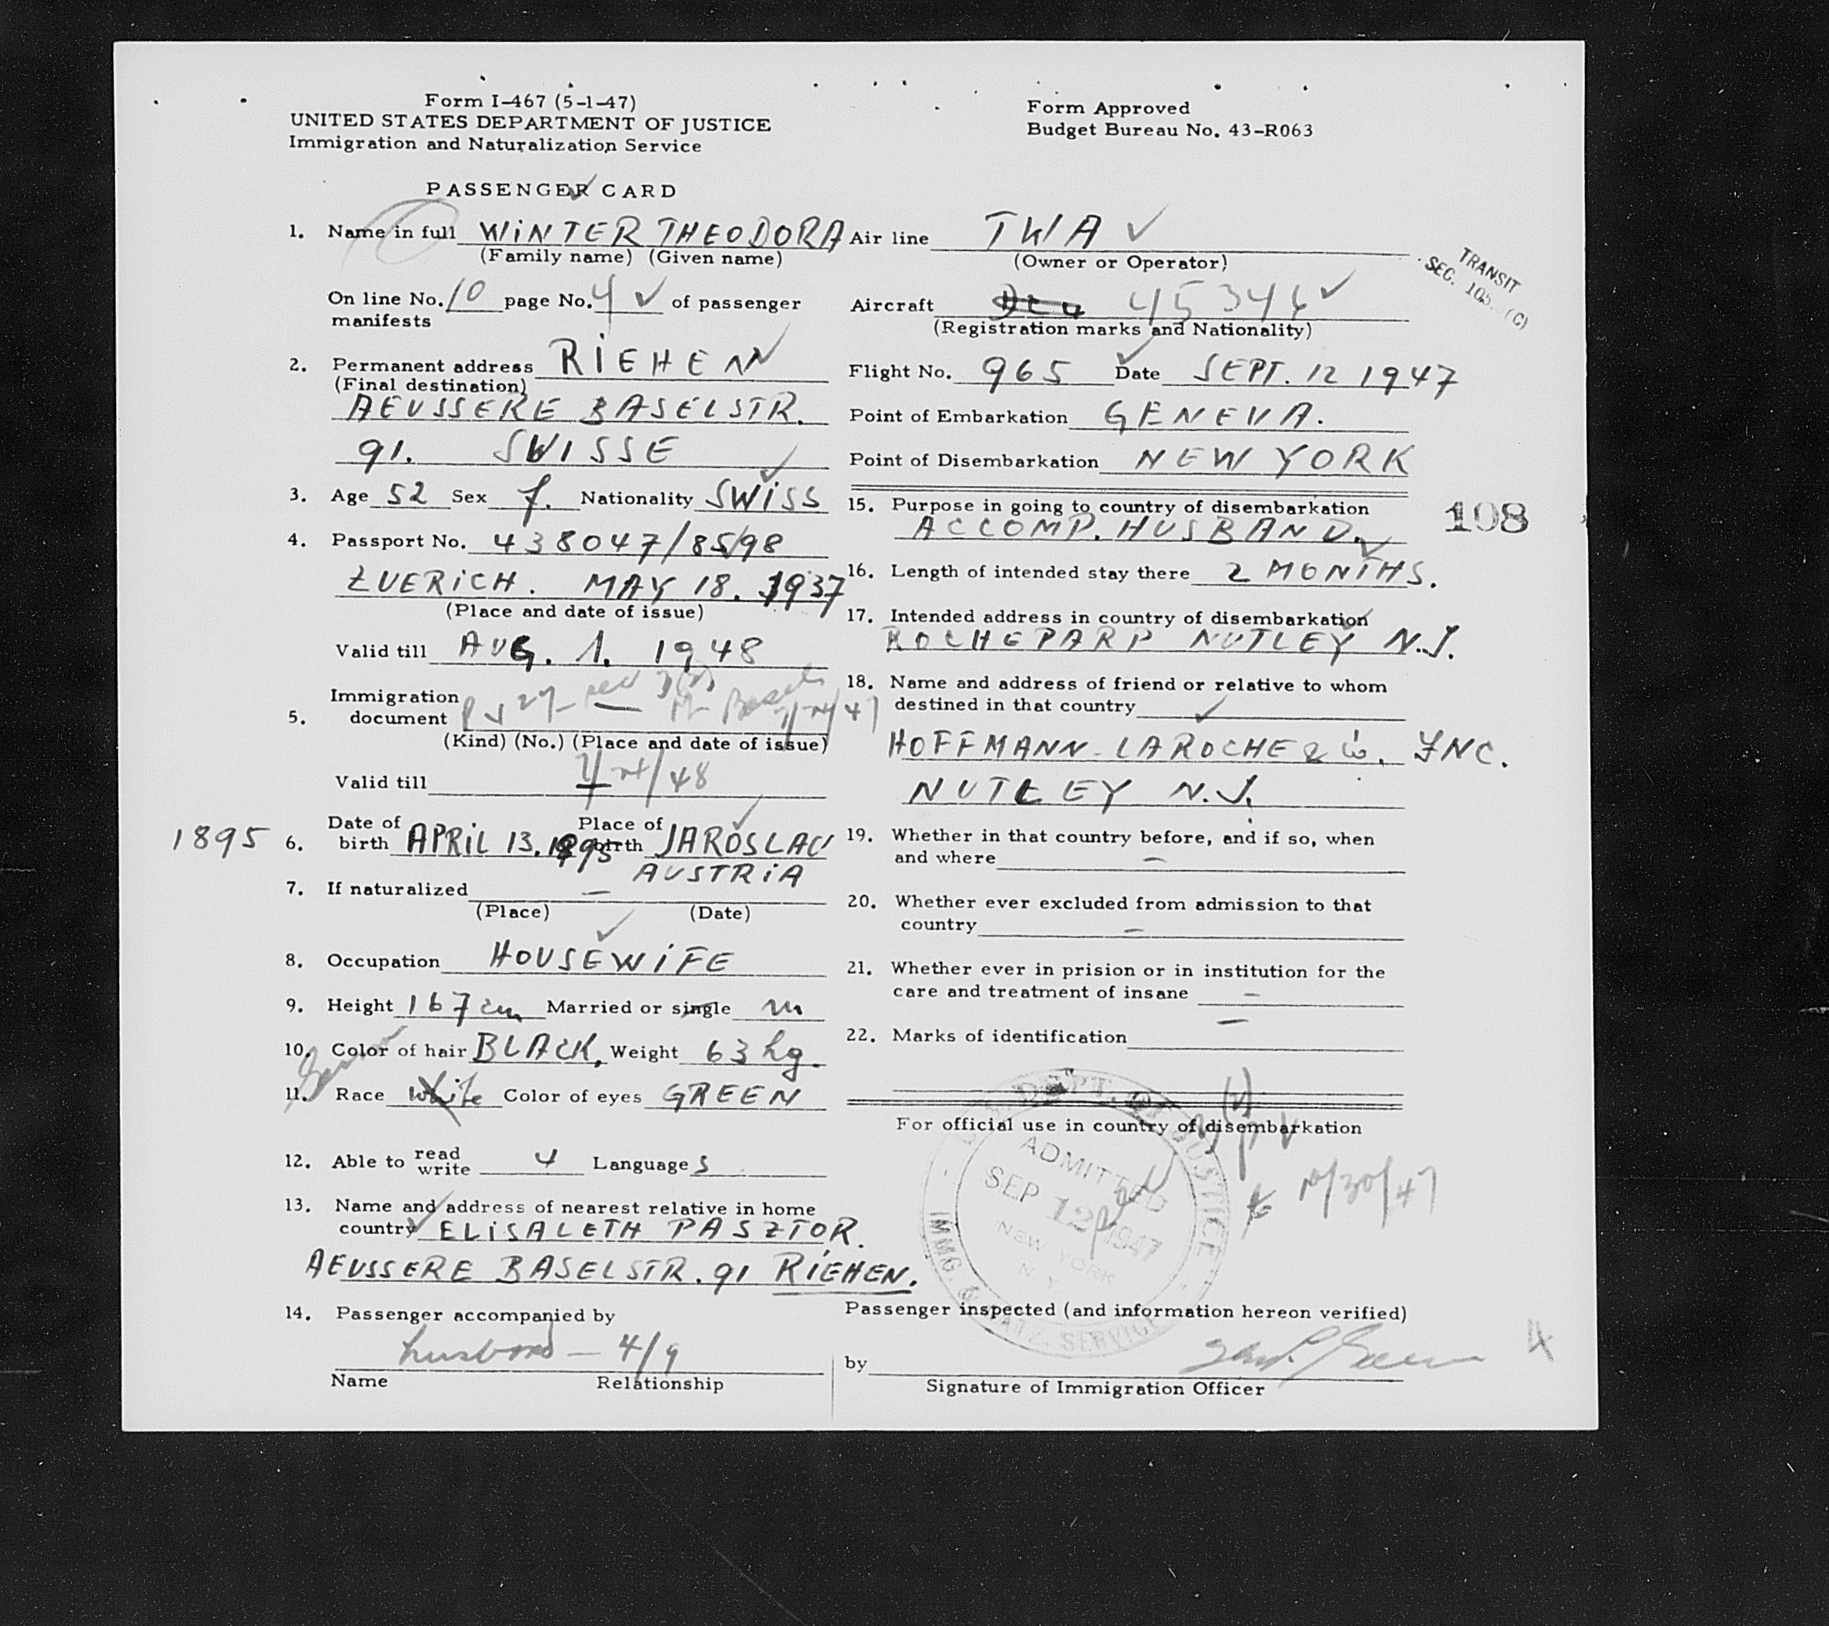 Form I-467 (5-1-47)
UNITED STATES DEPARTMENT OF JUSTICE
Immigration and Naturalization Service
Form Approved
Budget Bureau No. 43-R063
PASSENGER CARD
1. Name in full WINTER THEODORA
(Family name) (Given name)
On line No. 10 page No. 4 of passenger
manifests
2. Permanent address RIEHEN
(Final destination)
AEUSSERE BASELSTR.
91. SWISSE
3. Age 52 Sex f. Nationality SWISS
4. Passport No. 438047/85/98
ZUERICH. MAY 18. 1937
(Place and date of issue)
Valid till AUG. 1. 1948
Immigration
5. document
(Kind) (No.) (Place and date of issue)
Valid till
1895
6. Date of birth APRIL 13. 1895 Place of birth JAROSLAU
AUSTRIA
7. If naturalized —
(Place) (Date)
8. Occupation HOUSEWIFE
9. Height 167 cm Married or single m
10. Color of hair BLACK. Weight 63 kg.
11. Race white Color of eyes GREEN
12. Able to read write 4 Language s
13. Name and address of nearest relative in home
country ELISALETH PASZTOR.
AEUSSERE BASELSTR. 91 RIEHEN.
14. Passenger accompanied by
husband — 4/9
Name Relationship
Air line TWA
(Owner or Operator)
TRANSIT
SEC. (C)
Aircraft 45346
(Registration marks and Nationality)
Flight No. 965 Date SEPT. 12 1947
Point of Embarkation GENEVA.
Point of Disembarkation NEW YORK
108
15. Purpose in going to country of disembarkation
ACCOMP. HUSBAND.
16. Length of intended stay there 2 MONTHS.
17. Intended address in country of disembarkation
ROCHEPARP NUTLEY N.J.
18. Name and address of friend or relative to whom
destined in that country
HOFFMANN-LAROCHE & Co. INC.
NUTLEY N.J.
19. Whether in that country before, and if so, when
and where —
20. Whether ever excluded from admission to that
country —
21. Whether ever in prision or in institution for the
care and treatment of insane —
22. Marks of identification —
For official use in country of disembarkation
DEPT. OF JUSTICE
ADMITTED
SEP 12 1947
NEW YORK
N.Y.
IMMG. & NATZ. SERVICE
10/30/47
Passenger inspected (and information hereon verified)
by
Signature of Immigration Officer
4